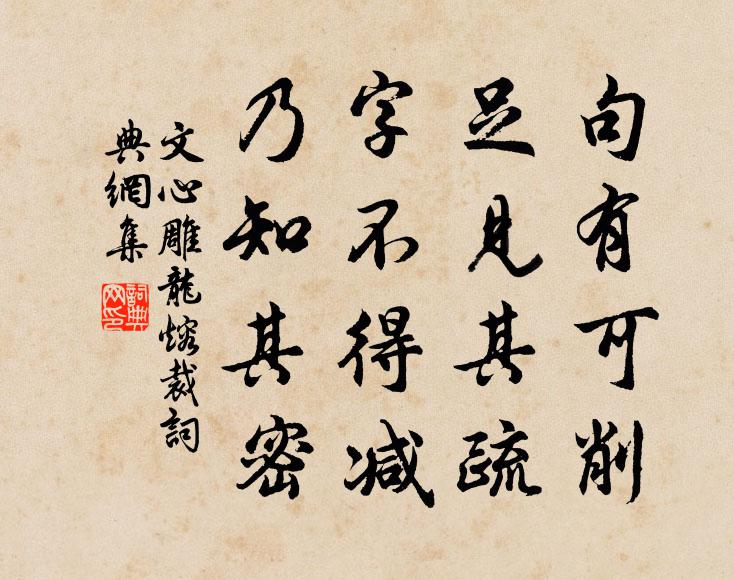 句有可削
足見其疏
字不得減
乃知其密
文心雕龍熔裁詞
典網集
詞典網印